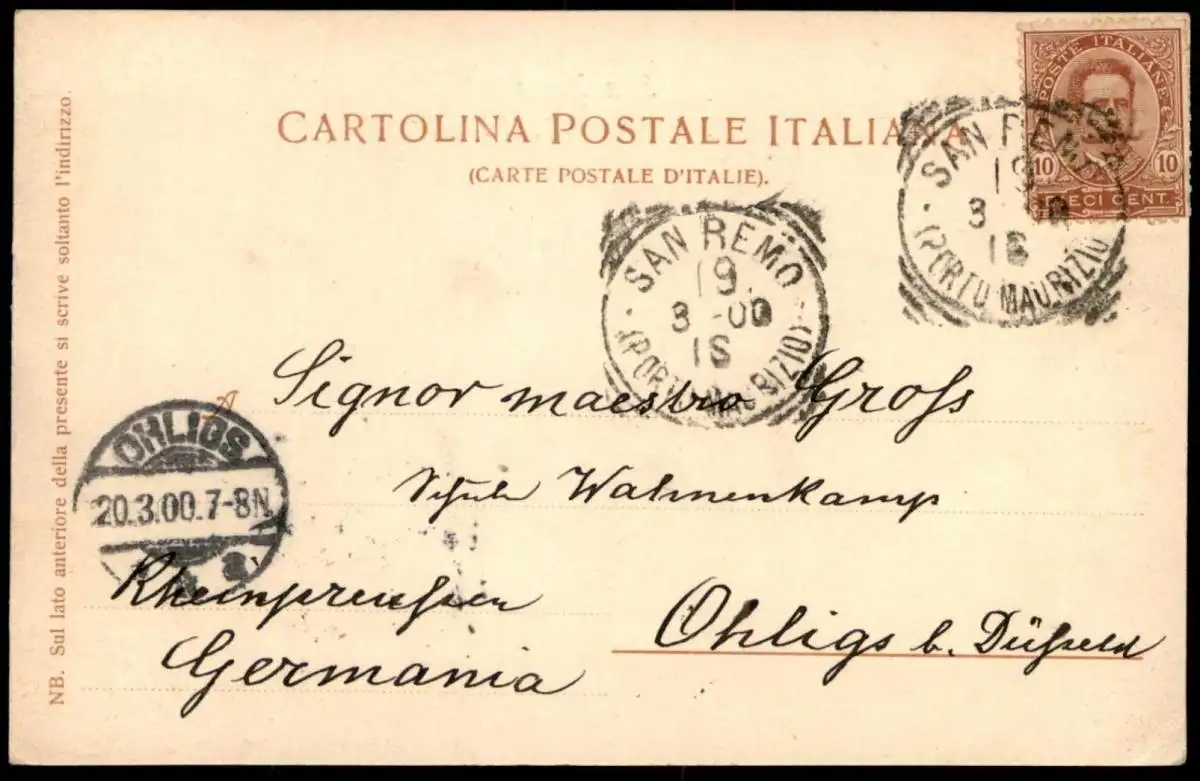 CARTOLINA POSTALE ITALIANA
(CARTE POSTALE D'ITALIE).
POSTE ITALIANE
10 10
ECI CENT.
SAN REMO
19
3
18
(PORTO MAURIZIO)
SAN REMO
19
3 -00
18
(PORTO MAURIZIO)
Signor maestro Groſs
Schule Wahnenkamp
OHLIGS
20.3.00.7-8N.
Rheinpreuſsen
Ohligs b. Düſseld
Germania
NB. Sul lato anteriore della presente si scrive soltanto l'indirizzo.